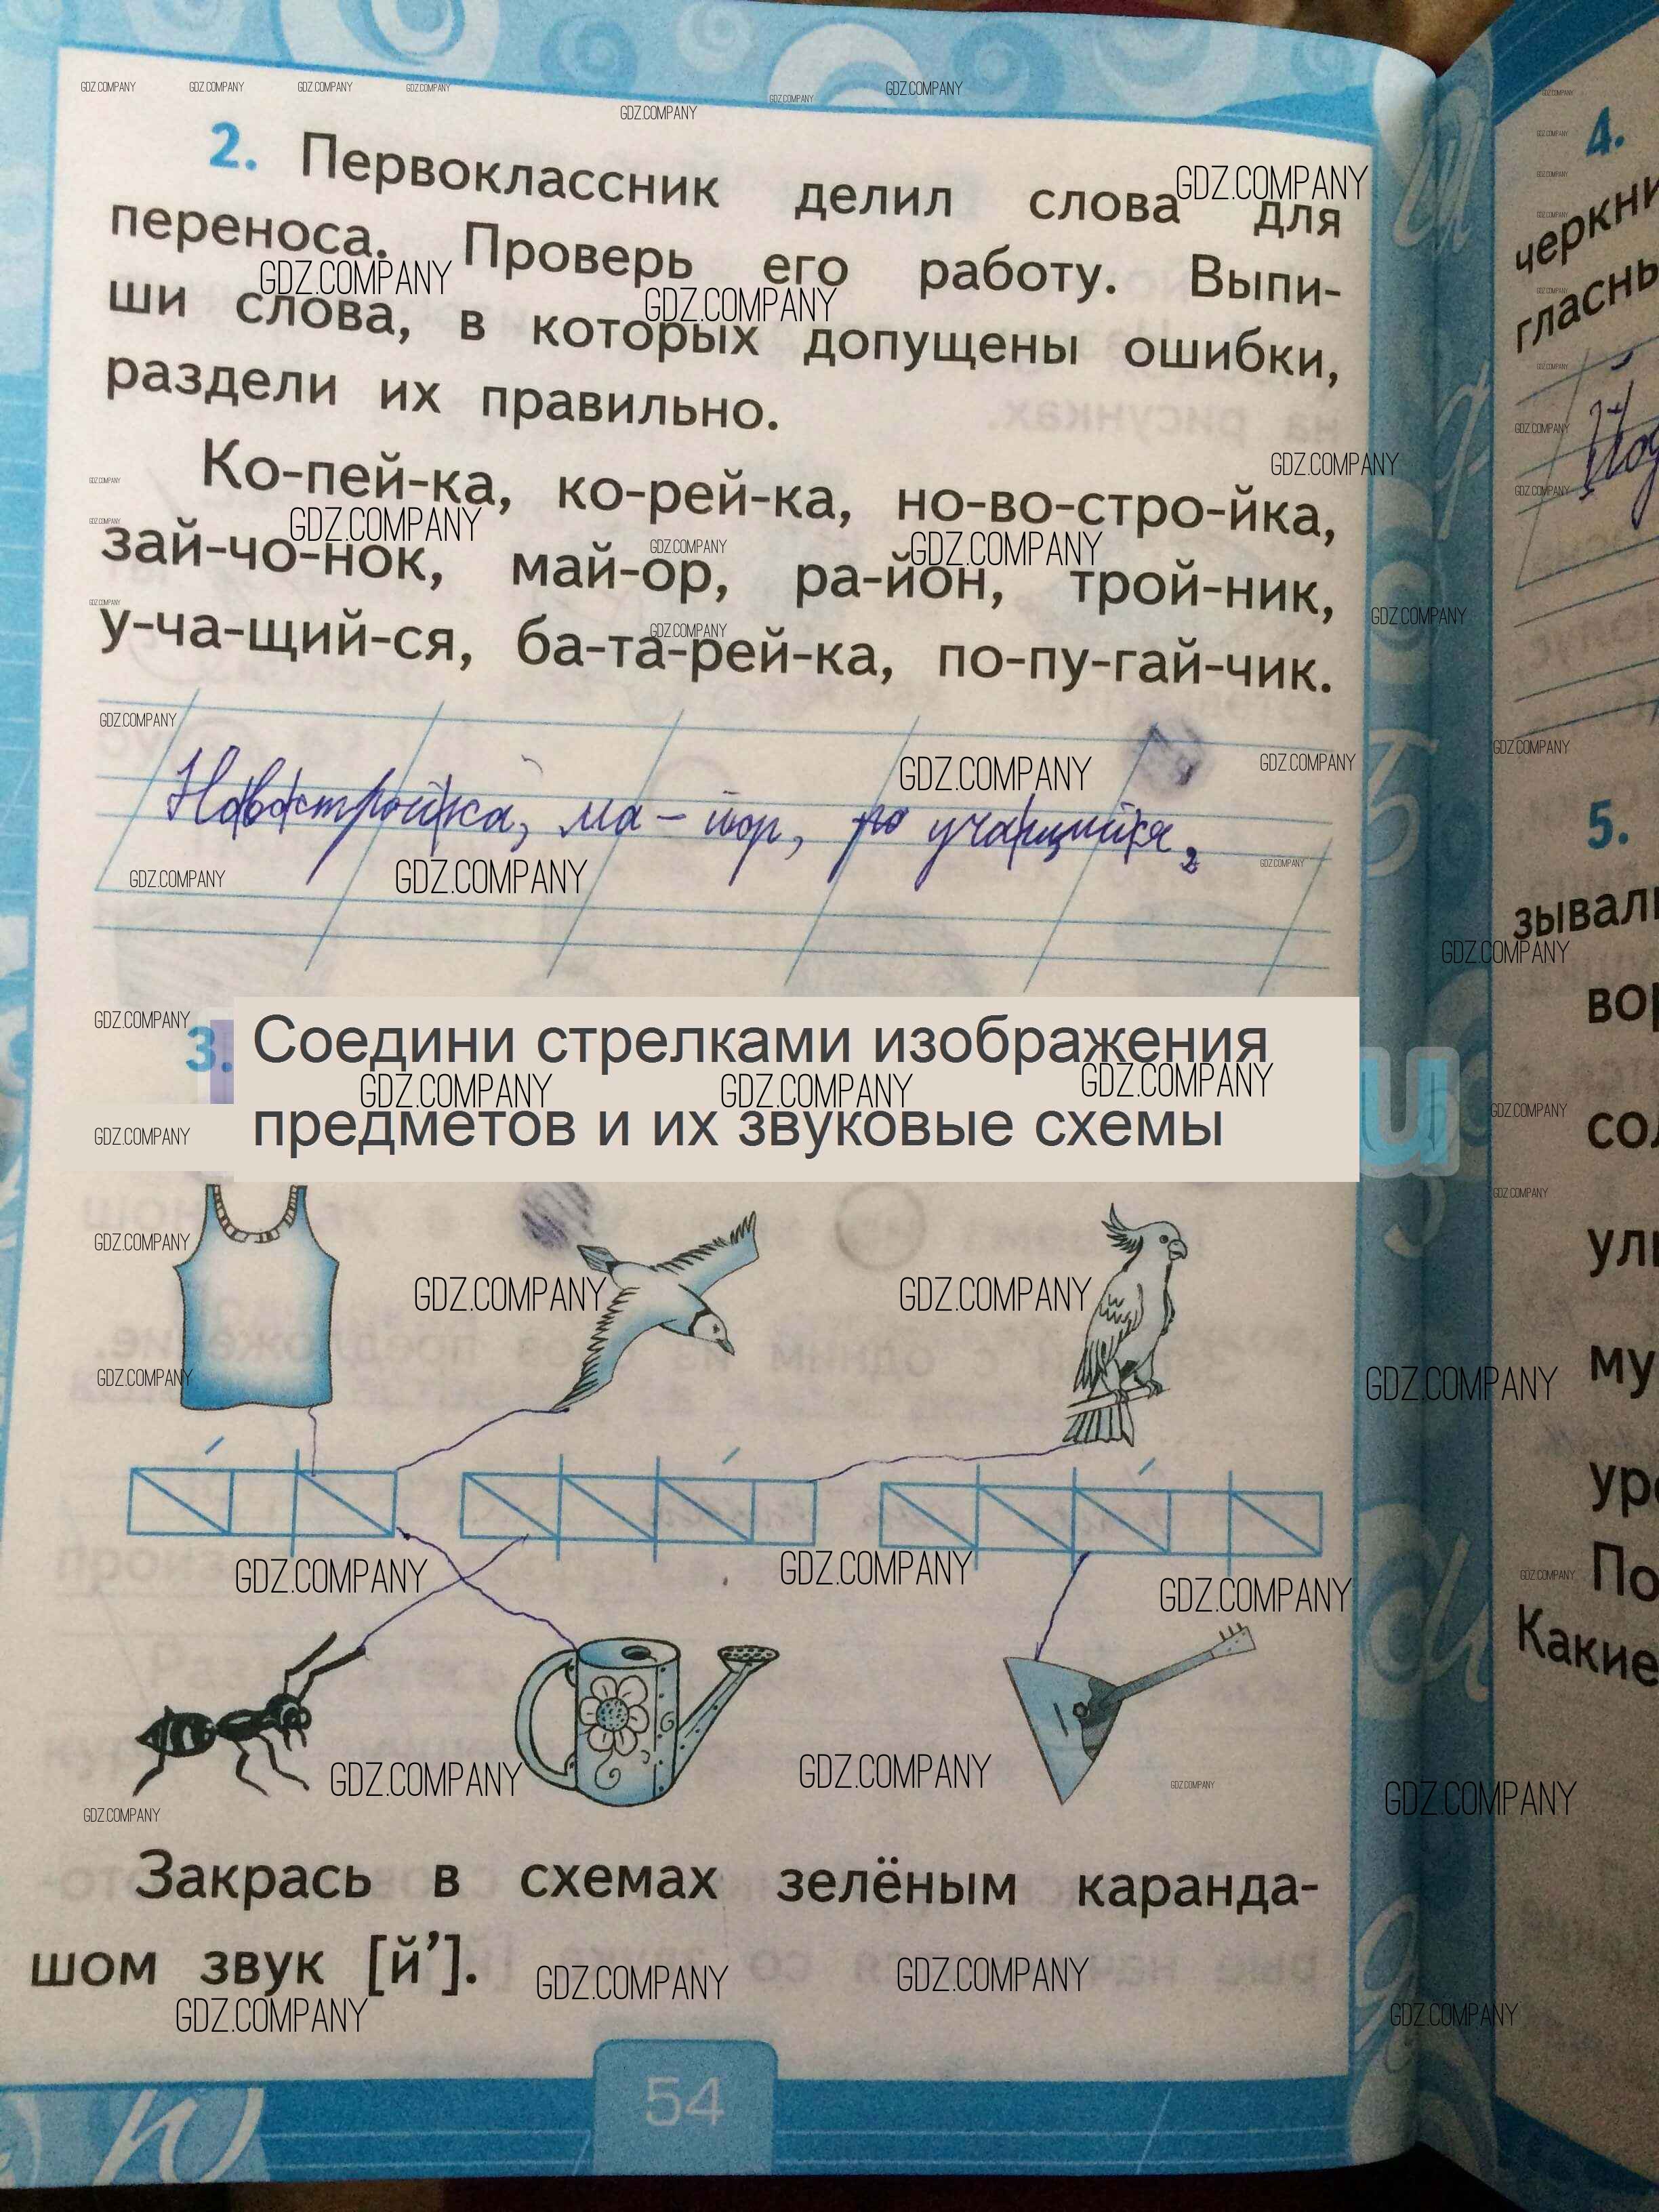 2. Первоклассник делил слова для
переноса. Проверь его работу. Выпи-
ши слова, в которых допущены ошибки,
раздели их правильно.
Ко-пей-ка, ко-рей-ка, но-во-стро-йка,
зай-чо-нок, май-ор, ра-йон, трой-ник,
у-ча-щий-ся, ба-та-рей-ка, по-пу-гай-чик.
ма - йор,
3. Соедини стрелками изображения
предметов и их звуковые схемы
Закрась в схемах зелёным каранда-
шом звук [й’].
54
4.
черкни
5.
зывал
Какие
GDZ.COMPANY